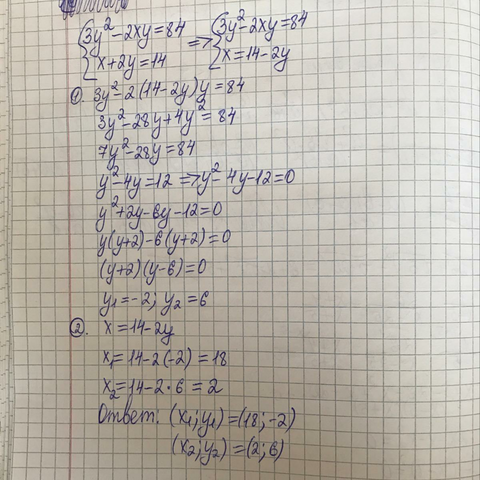 {3y²-2xy=84 => {3y²-2xy=84
{x+2y=14 {x=14-2y
①. 3y²-2(14-2y)y=84
3y²-28y+4y²=84
7y²-28y=84
y²-4y=12 => y²-4y-12=0
y²+2y-6y-12=0
y(y+2)-6(y+2)=0
(y+2)(y-6)=0
y₁=-2; y₂=6
②. x=14-2y
x₁=14-2(-2)=18
x₂=14-2·6=2
Ответ: (x₁;y₁)=(18;-2)
(x₂;y₂)=(2;6)